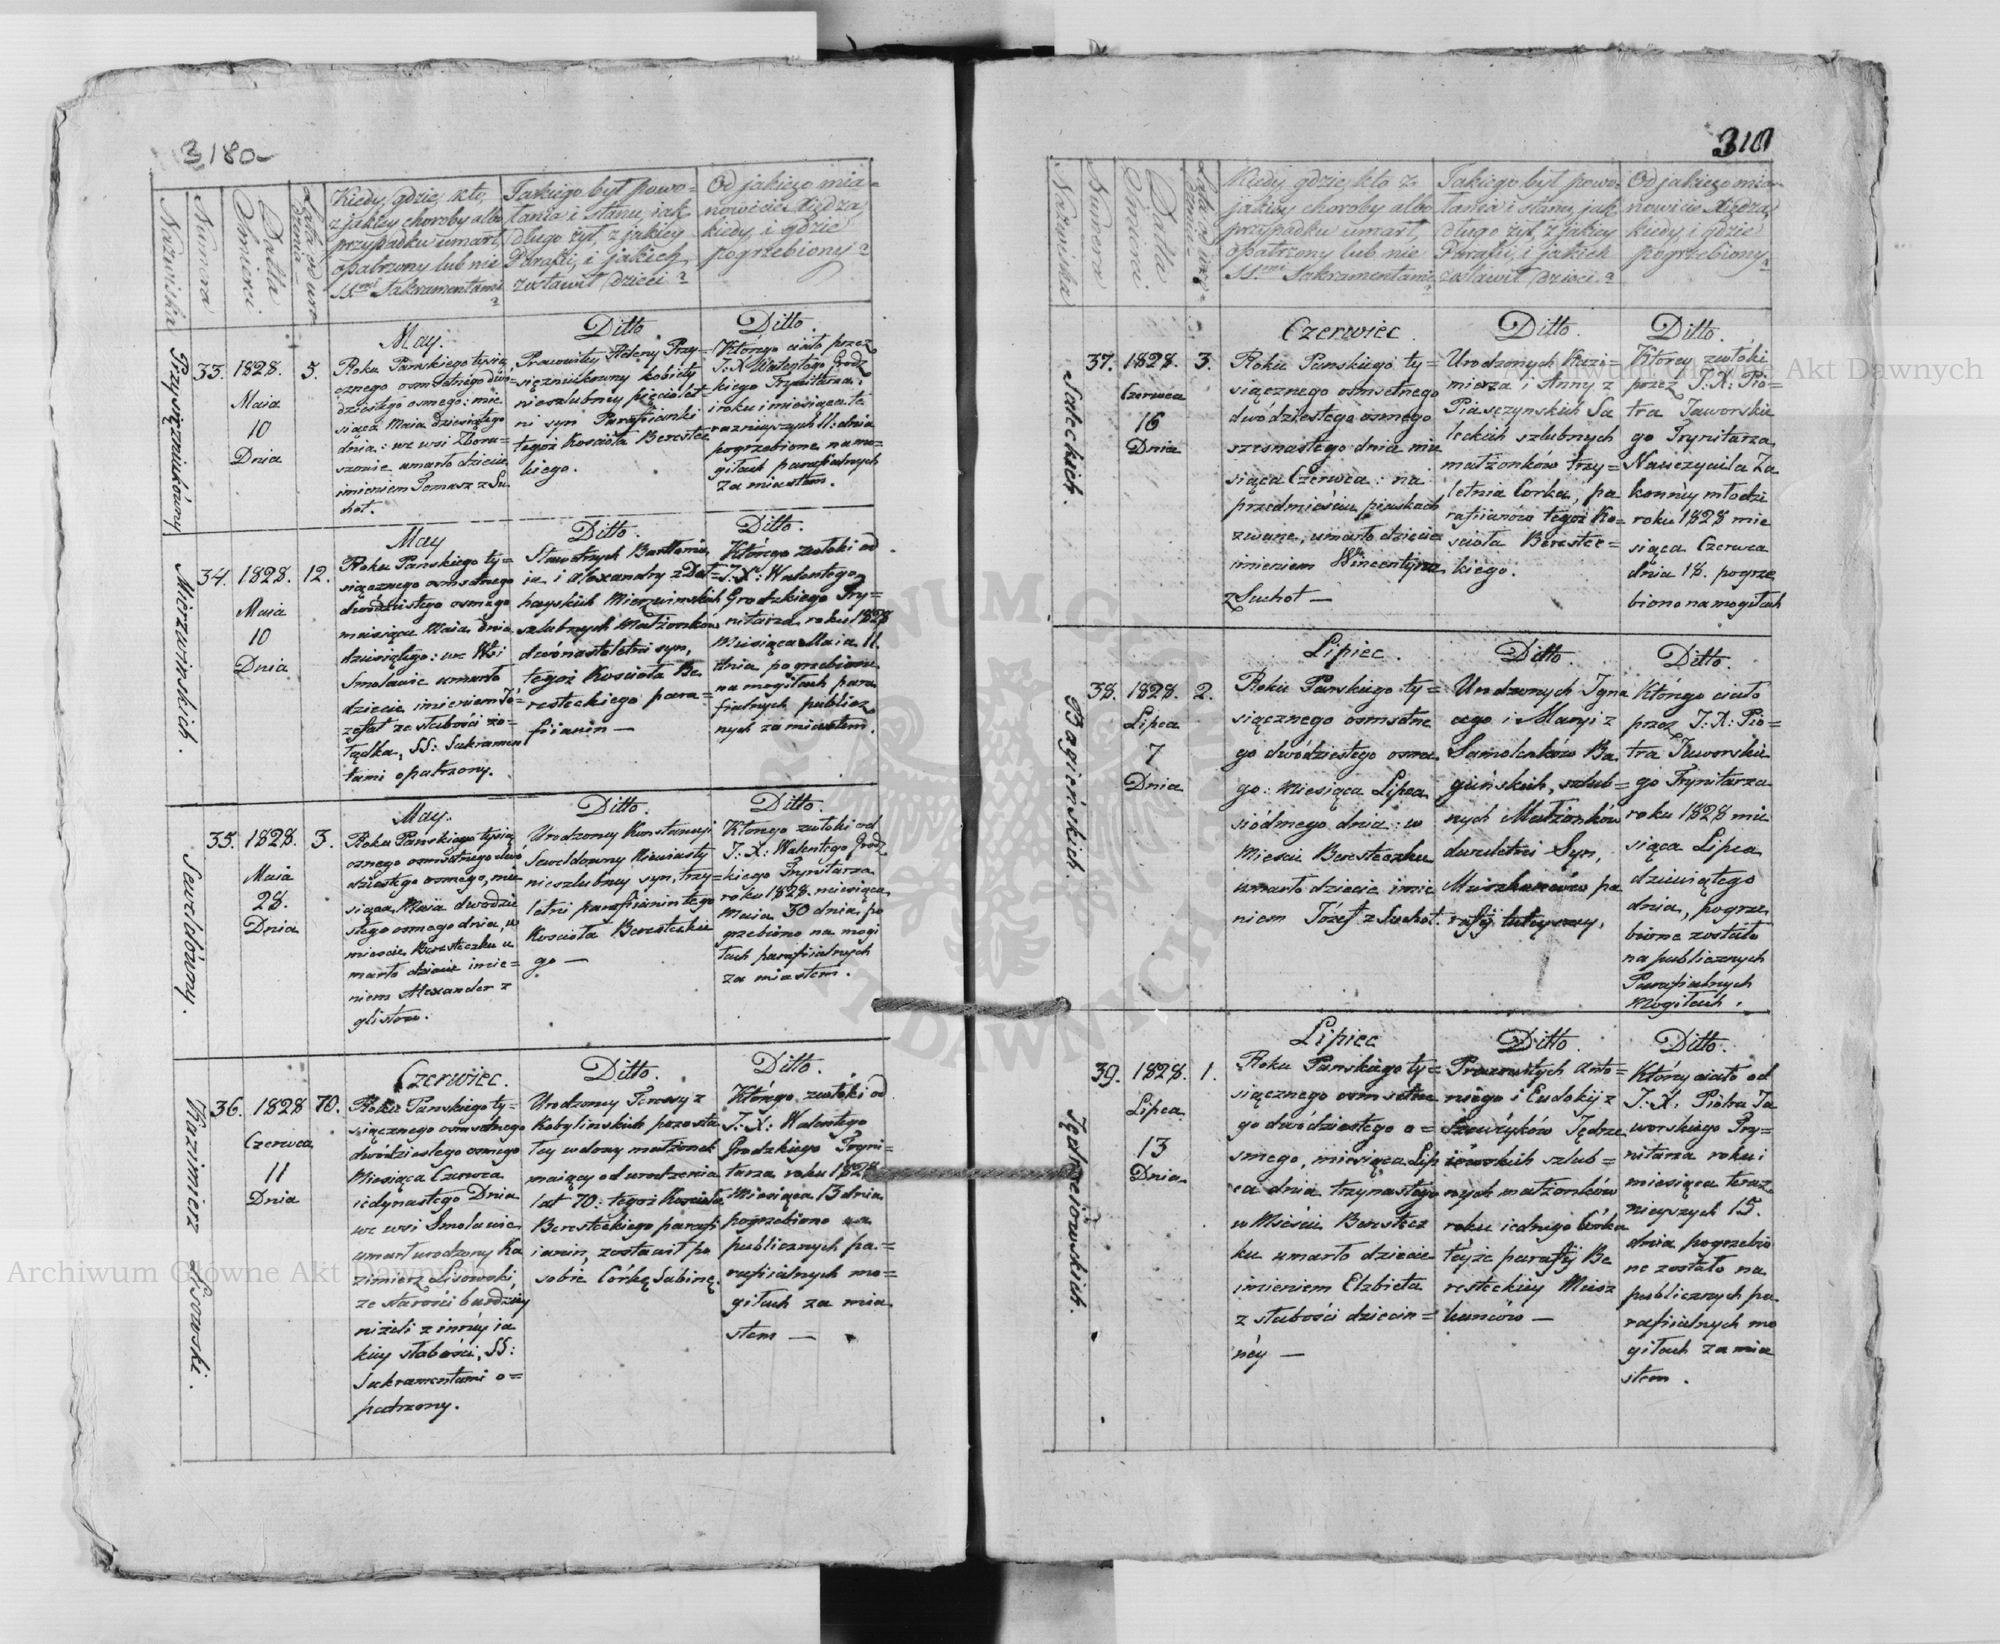 3180
Nazwiska
Numera
Datta Śmierci
Lata od uro= dzenia
Kiedy, gdzie, kto,
z jakiey choroby albo
przypadku umarł,
opatrzony lub nie
SS.mi Sakramentami
?
Jakiego był powo=
łania i stanu, jak
długo żył, z jakiey
Parafii, i jakich
zostawił Dzieci?
Od jakiego mia=
nowicie Xiędza,
kiedy i gdzie
pogrzebiony?
Przysięzniukówny
33.
1828.
Maia
10
Dnia
5.
May.
Roku Pańskiego tysią
cznego osmsetnego dwó=
dziestego osmego: mie
siąca Maia dziesiątego
dnia: we wsi
umarło dziecie
imieniem Tomasz z Su
chot.
Ditto.
Pracowitey Przy=
sięzniukowny kobiety
nieszlubney pięciolet=
ni syn Parafianki
tegoż Kościoła Berestec
kiego.
Ditto.
Którego ciało przez
J: X: Walentego Grodz
kiego Trynitarza:
i roku i miesiąca te
raznieyszych 11. dnia
pogrzebione na mo=
giłach parafialnych
za miastem.
Mierzwinskich.
34.
1828.
Maia
10
Dnia
12.
May
Roku Pańskiego ty=
siącznego osmsetnego
dwódziestego osmego
miesiąca Maia dnia
dziesiątego: we Wsi
Smolawie umarło
dziecie imieniem Jó=
zefat ze słabości żo=
łądka, SS: Sakramen
tami opatrzony.
Ditto.
Sławetnych Bartłomie
ia i Alexandry z
Mierzwinskich
szlubnych Małżonków
dwónastoletni syn,
tegoż Kościoła Be
resteckiego para=
fiianin —
Ditto.
Którego zwłoki od
J: X: Walentego
Grodzkiego Try=
nitarza roku 1828
Miesiąca Maia 11.
dnia pogrzebione
na mogiłach para
fialnych publicz
nych za miastem.
Saweldówny.
35.
1828.
Maia
28.
Dnia
3.
May.
Roku Pańskiego tysią
cznego osmsetnego dwó
dziestego osmego, mie
siąca Maia dwódzie
stego osmego dnia, w
miescie Beresteczku u
marło dziecie imie=
niem Alexander z
glistow.
Ditto.
Urodzoney Konstancyi
Saweldowny Niewiasty
nieszlubney syn, trzy=
letni parafiianin tego
Kościoła Beresteckie
go —
Ditto.
Ktorego zwłoki od
J: X: Walentego Grodz
kiego Trynitarza
roku 1828. miesiąca
Maia 30 dnia, po
grzebione na mogi
łach parafiialnych
za miastem.
Kazimierz Lisowski.
36.
1828
Czerwca
11
Dnia
70.
Czerwiec.
Roku Pańskiego ty=
siącznego osmsetnego
dwódziestego osmego
Miesiąca Czerwca
iedynastego Dnia
we wsi Smolawie
umarł urodzony Ka
zimierz Lisowski,
ze starości bardziey
niżeli z inney ia
kiey słabości, SS:
Sakramentami o=
patrzony.
Ditto.
Urodzoney Teressy z
Kobylinskich pozosta
łey wdowy małżonek
maiący od urodzenia
lat 70: tegoż Kościoła
Beresteckiego parafi
ianin, zostawił po
sobie Córkę Sabinę.
Ditto.
Którego zwłoki od
J: X: Walentego
Grodzkiego Tryni=
tarza roku 1828
Miesiąca 13 dnia
pogrzebione na
publicznych pa=
rafiialnych mo=
giłach za mia
stem —
Nazwiska
Numera
Datta Śmierci
Lata od uro= dzenia
Kiedy, gdzie, kto z
jakiey choroby albo
przypadku umarł
opatrzony lub nie
SS.mi Sakramentami
?
Jakiego był powo=
łania i stanu, jak
długo żył, z jakiey
Parafii, i jakich
zostawił Dzieci?
Od jakiego mia=
nowicie Xiędza,
kiedy i gdzie
pogrzebiony?
Saleckich.
37.
1828.
Czerwca
16
Dnia
3.
Czerwiec.
Roku Pańskiego ty=
siącznego osmsetnego
dwódziestego osmego
szesnastego dnia mie
siąca Czerwca: na
przedmieściu piaskach
zwane, umarło dziecie
imieniem Wincentyna
z Suchot —
Ditto.
Urodzonych Kazi=
mierza i Anny z
Piasczynskich Sa
leckich szlubnych
małżonków trzy=
letnia Corka, pa
rafiianów tegoż Ko=
scioła Berestec=
kiego.
Ditto.
Ktorey zwłoki
przez J: X: Pio=
tra Jaworskie
go Trynitarza
Nauczyciela Za
konney młodzi
roku 1828 mie
siąca Czerwca
dnia 18. pogrze
biono na mogiłach
Bagieńskich.
38.
1828.
Lipca
7
Dnia
2.
Lipiec.
Roku Pańskiego ty=
siącznego osmsetne
go dwódziestego osme
go: Miesiąca Lipca
siódmego dnia: w
Miescie Beresteczku
umarło dziecie imie
niem Józef z Suchot.
Ditto.
Urodzonych Igna
cego i Maryi z
Samoleńków Ba
gieńskich, szlub=
nych Małżonków
dwuletni Syn,
Mieszkańców pa
rafij tuteyszey,
Ditto.
Którego ciało
przez J: X: Pio=
tra Jaworskie
go Trynitarza
roku 1828 mie
siąca Lipca
dziewiątego
dnia, pogrze
bione zostało
na publicznych
Parafialnych
Mogiłach.
Jędrzejówskich.
39.
1828.
Lipca
13
Dnia
1.
Lipiec
Roku Pańskiego ty=
siącznego osmsetne
go dwódziestego o=
smego, miesiąca Lip
ca dnia trzynastego
w Mieście Berestecz
ku umarło dziecie
imieniem Elzbieta
z słabości dziecin=
néy —
Ditto.
Pracowitych Anto=
niego i Eudokij z
Szewczyków Jędrze
iówskich szlub=
nych małżonków
roku iednego Córka
teyże parafij Be
resteckiey Miesz
kanców —
Ditto.
Którey ciało od
J: X: Piotra Ja
worskiego Try=
nitarza roku i
miesiąca teraz
nieyszych 15.
dnia pogrzebio
ne zostało na
publicznych pa
rafiialnych mo
giłach za mia
stem.
Archiwum Główne Akt Dawnych
Archiwum Główne Akt Dawnych
ARCHIWUM GŁÓWNE AKT DAWNYCH